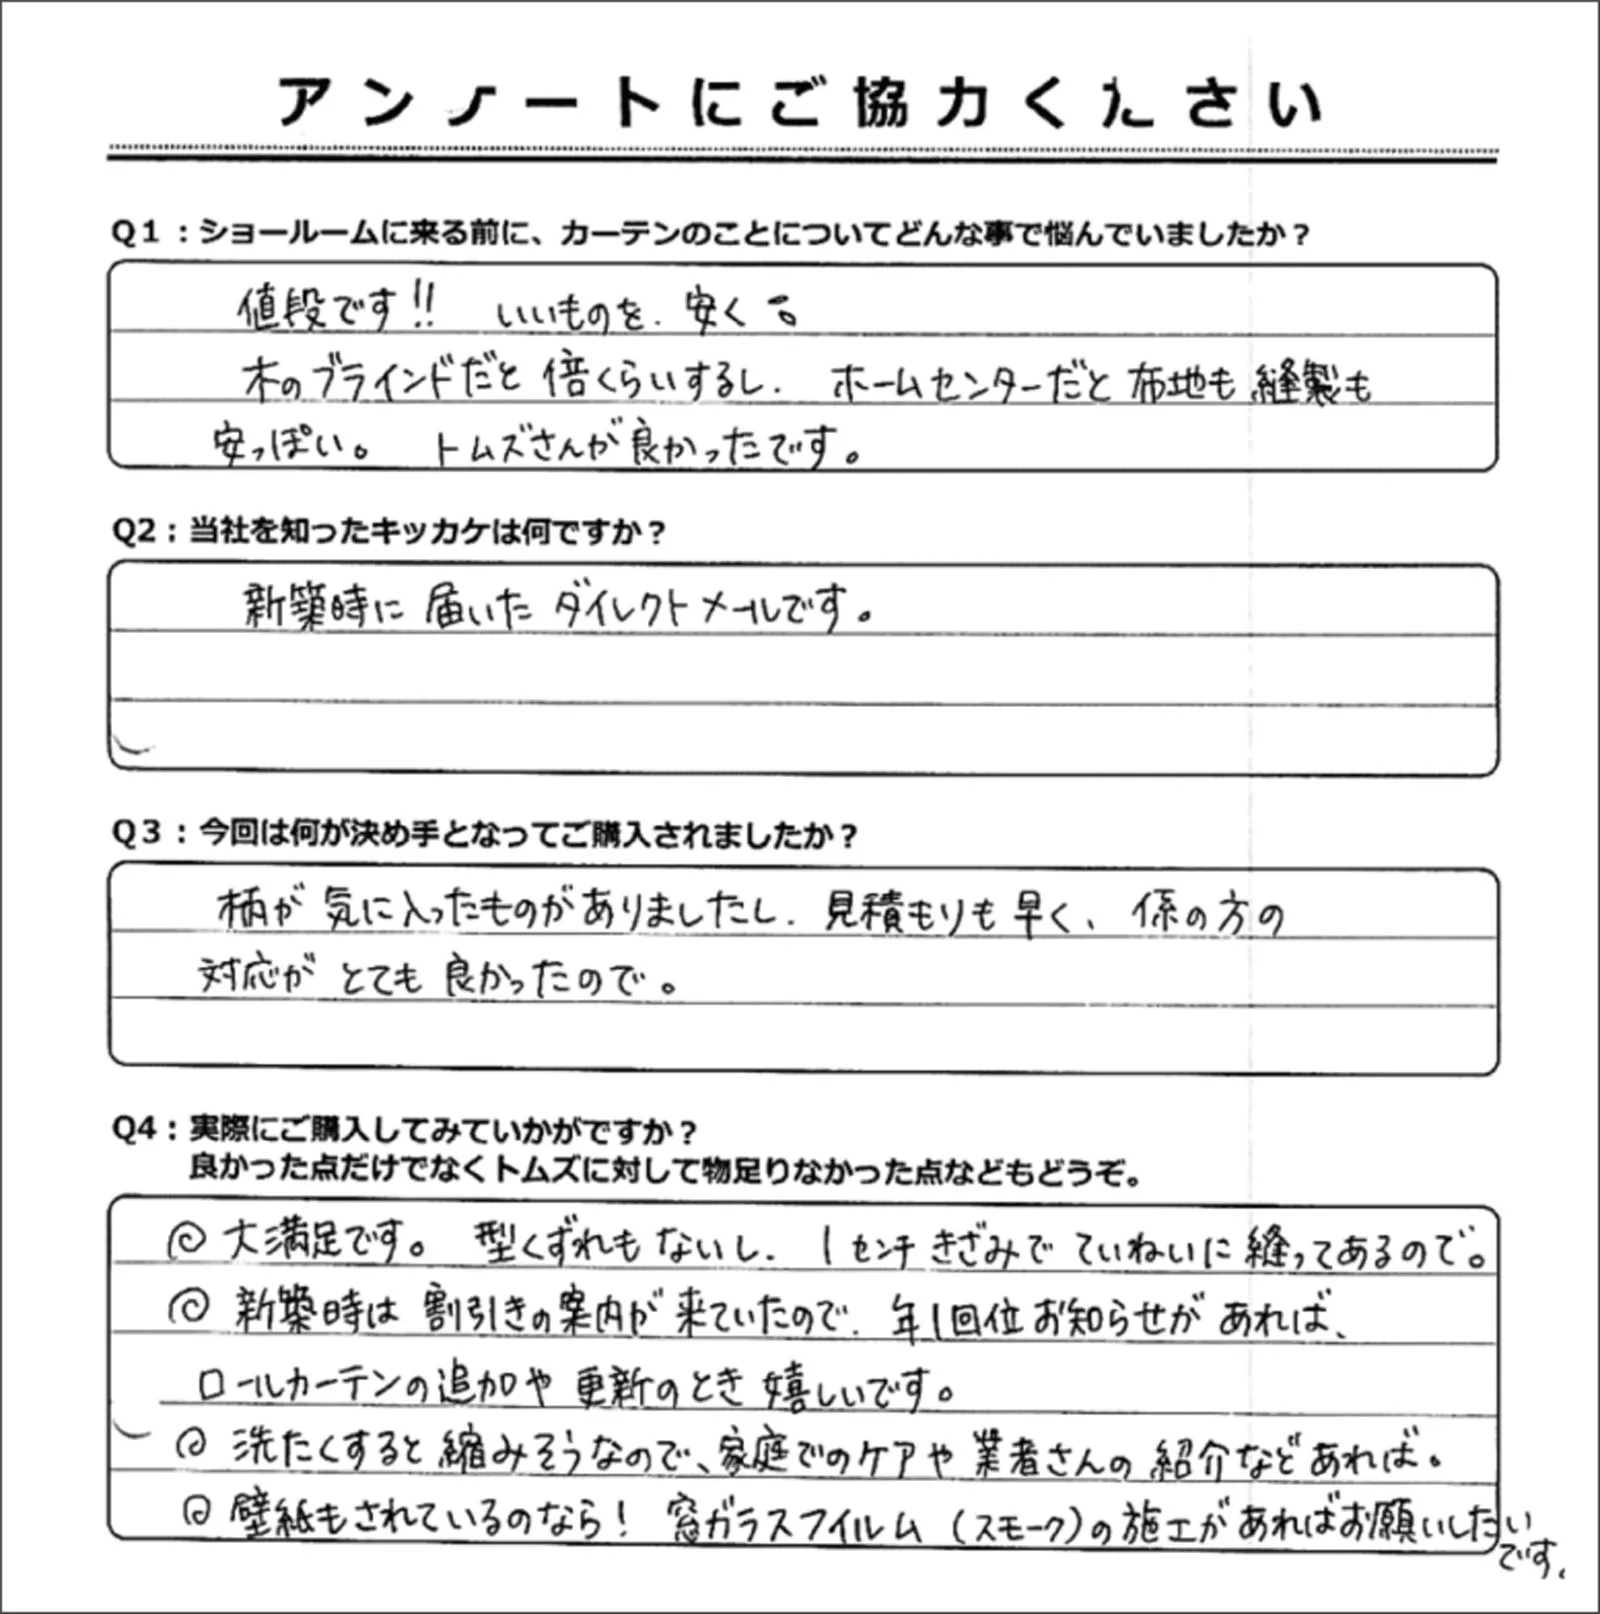 アンケートにご協力ください
Q1：ショールームに来る前に、カーテンのことについてどんな事で悩んでいましたか？
値段です!! いいものを、安く。
木のブラインドだと倍くらいするし、ホームセンターだと布地も縫製も
安っぽい。 トムズさんが良かったです。
Q2：当社を知ったキッカケは何ですか？
新築時に届いたダイレクトメールです。
Q3：今回は何が決め手となってご購入されましたか？
柄が気に入ったものがありましたし、見積もりも早く、係の方の
対応がとても良かったので。
Q4：実際にご購入してみていかがですか？
良かった点だけでなくトムズに対して物足りなかった点などもどうぞ。
◎ 大満足です。 型くずれもないし、1センチきざみでていねいに縫ってあるので。
◎ 新築時は割引きの案内が来ていたので、年1回位お知らせがあれば、
ロールカーテンの追加や更新のとき嬉しいです。
◎ 洗たくすると縮みそうなので、家庭でのケアや業者さんの紹介などあれば。
◎ 壁紙もされているのなら! 窓ガラスフィルム（スモーク）の施工があればお願いしたい
です。